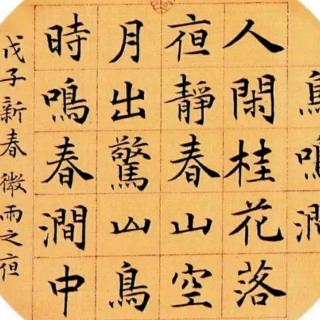 鳥鳴澗
人閑桂花落
夜靜春山空
月出驚山鳥
時鳴春澗中
戊子新春微雨之夜